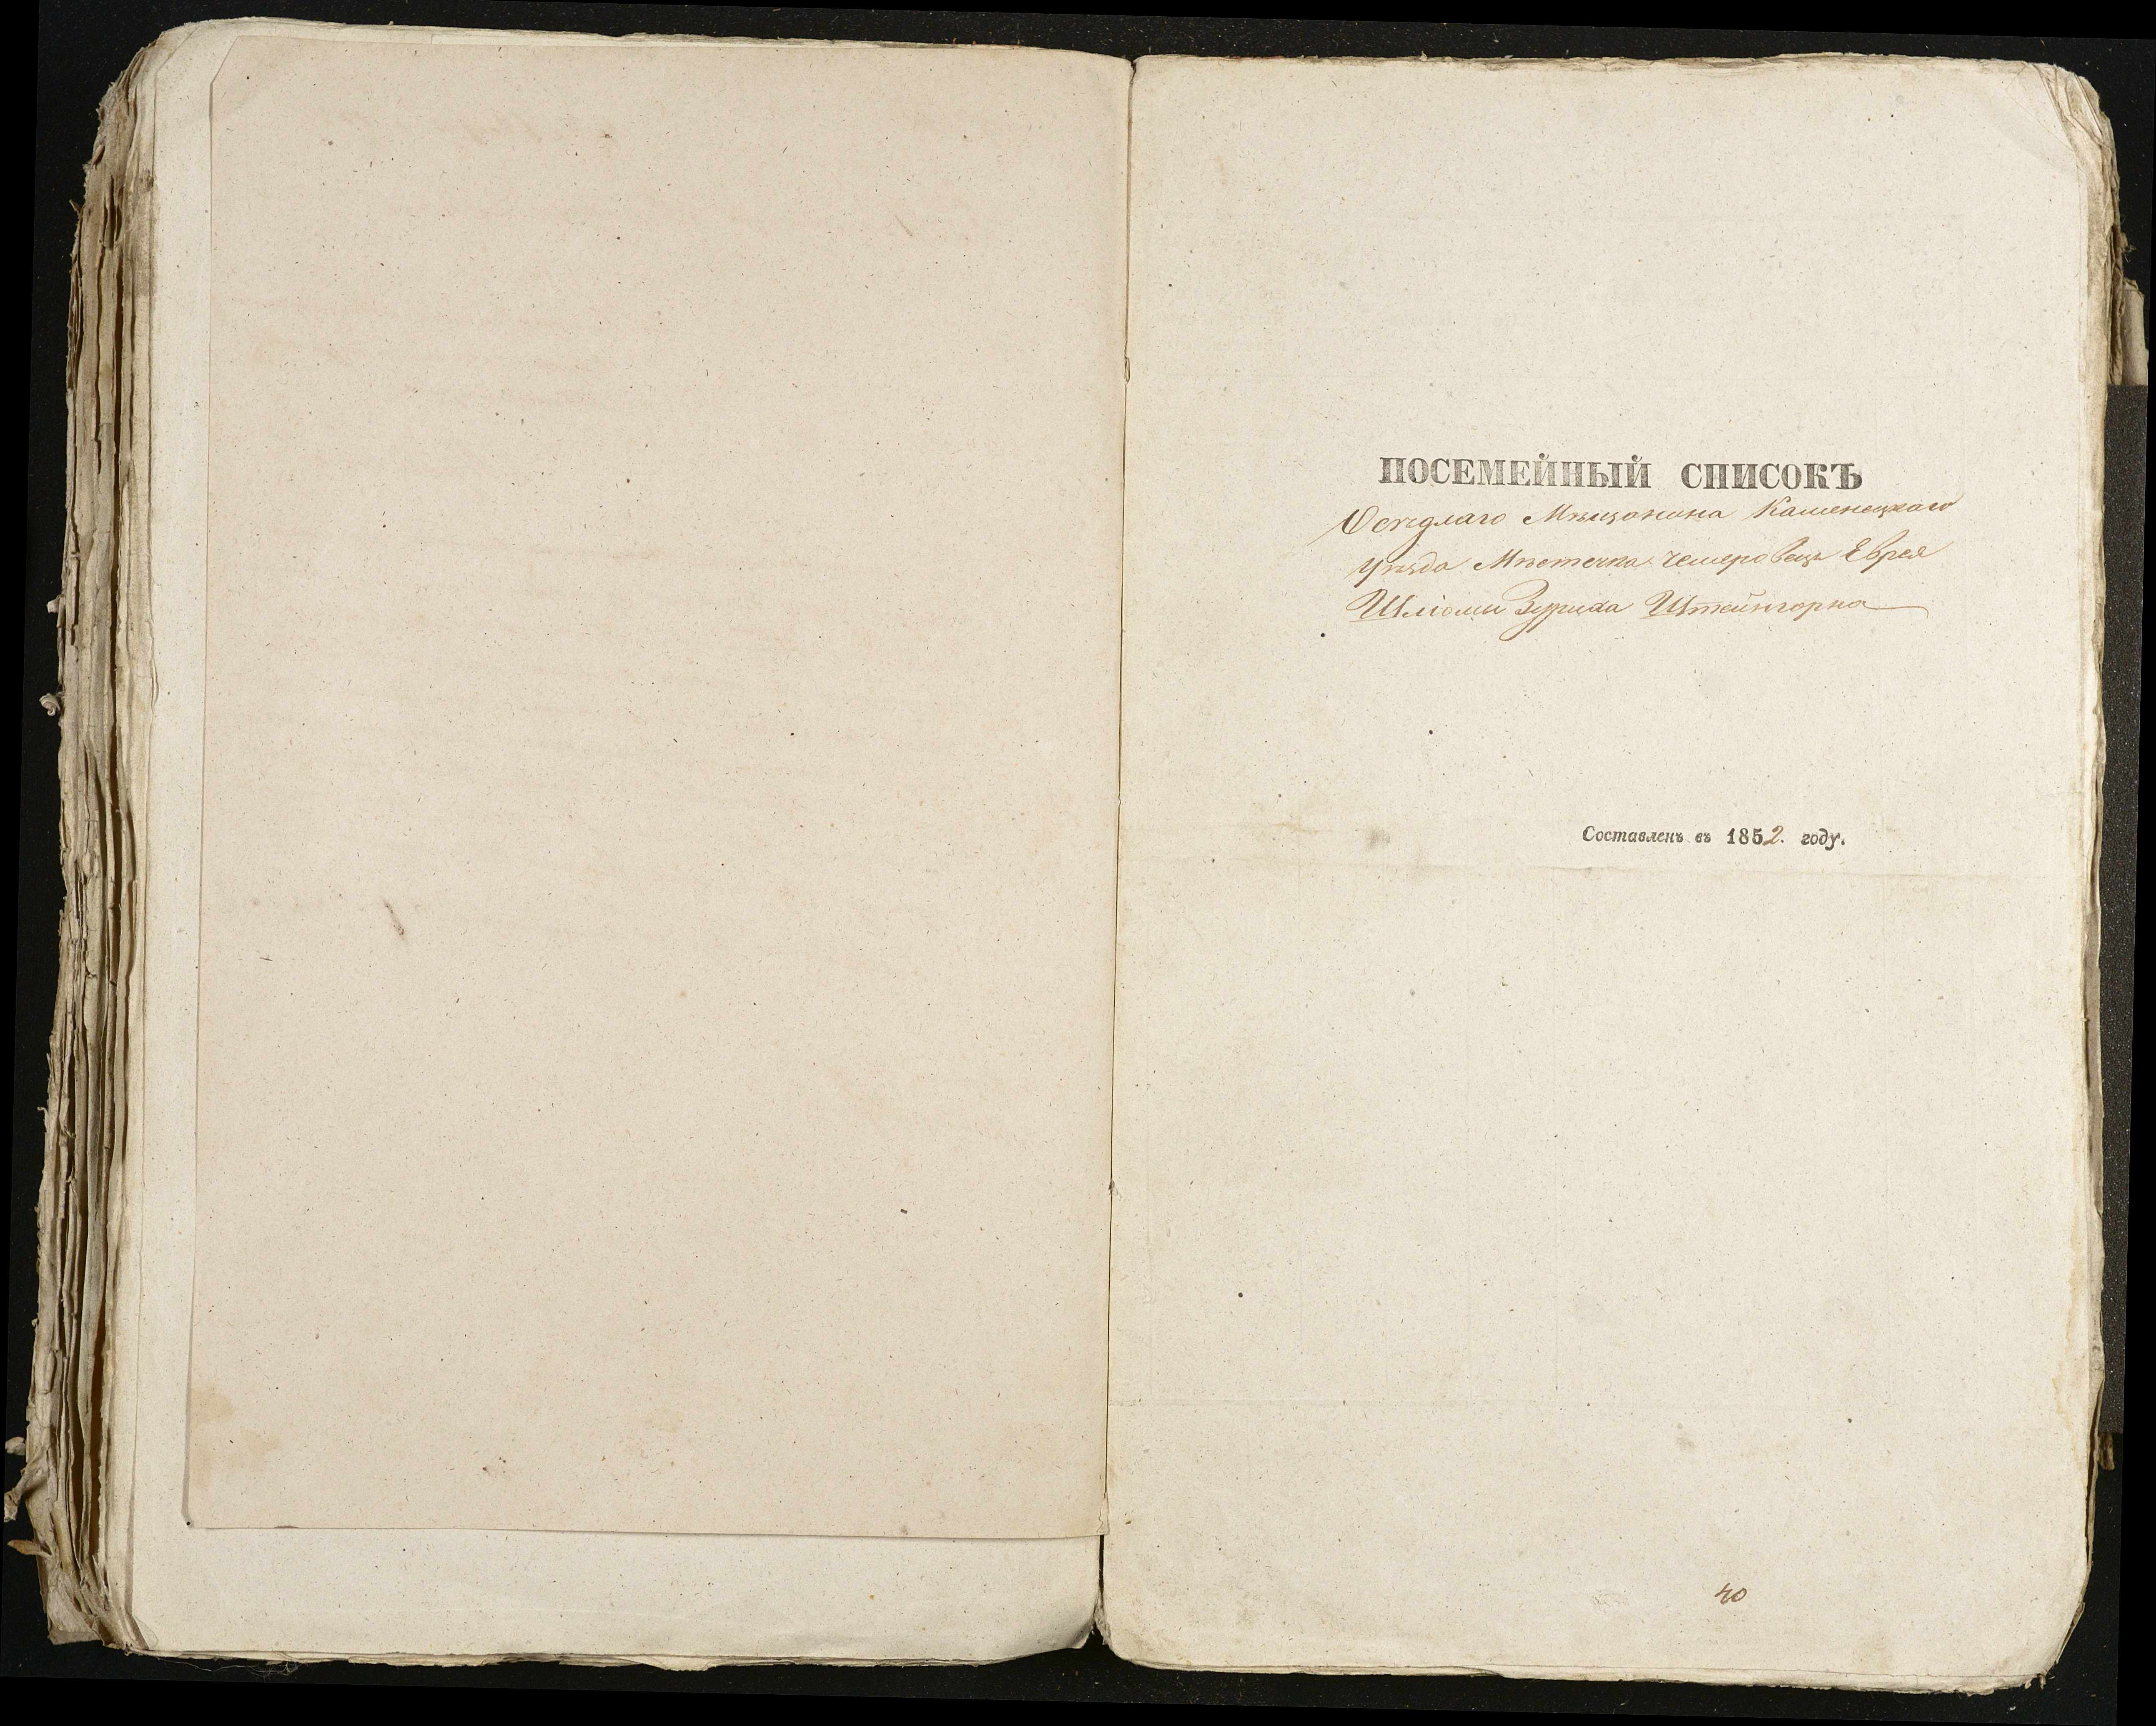 ПОСЕМЕЙНЫЙ СПИСОКЪ
Осѣдлаго Мѣщанина Каменецкаго
Уѣзда Мѣстечка Чемеровецъ Еврея
Шліомы Штейнгорна
Составленъ въ 1852. году.
40